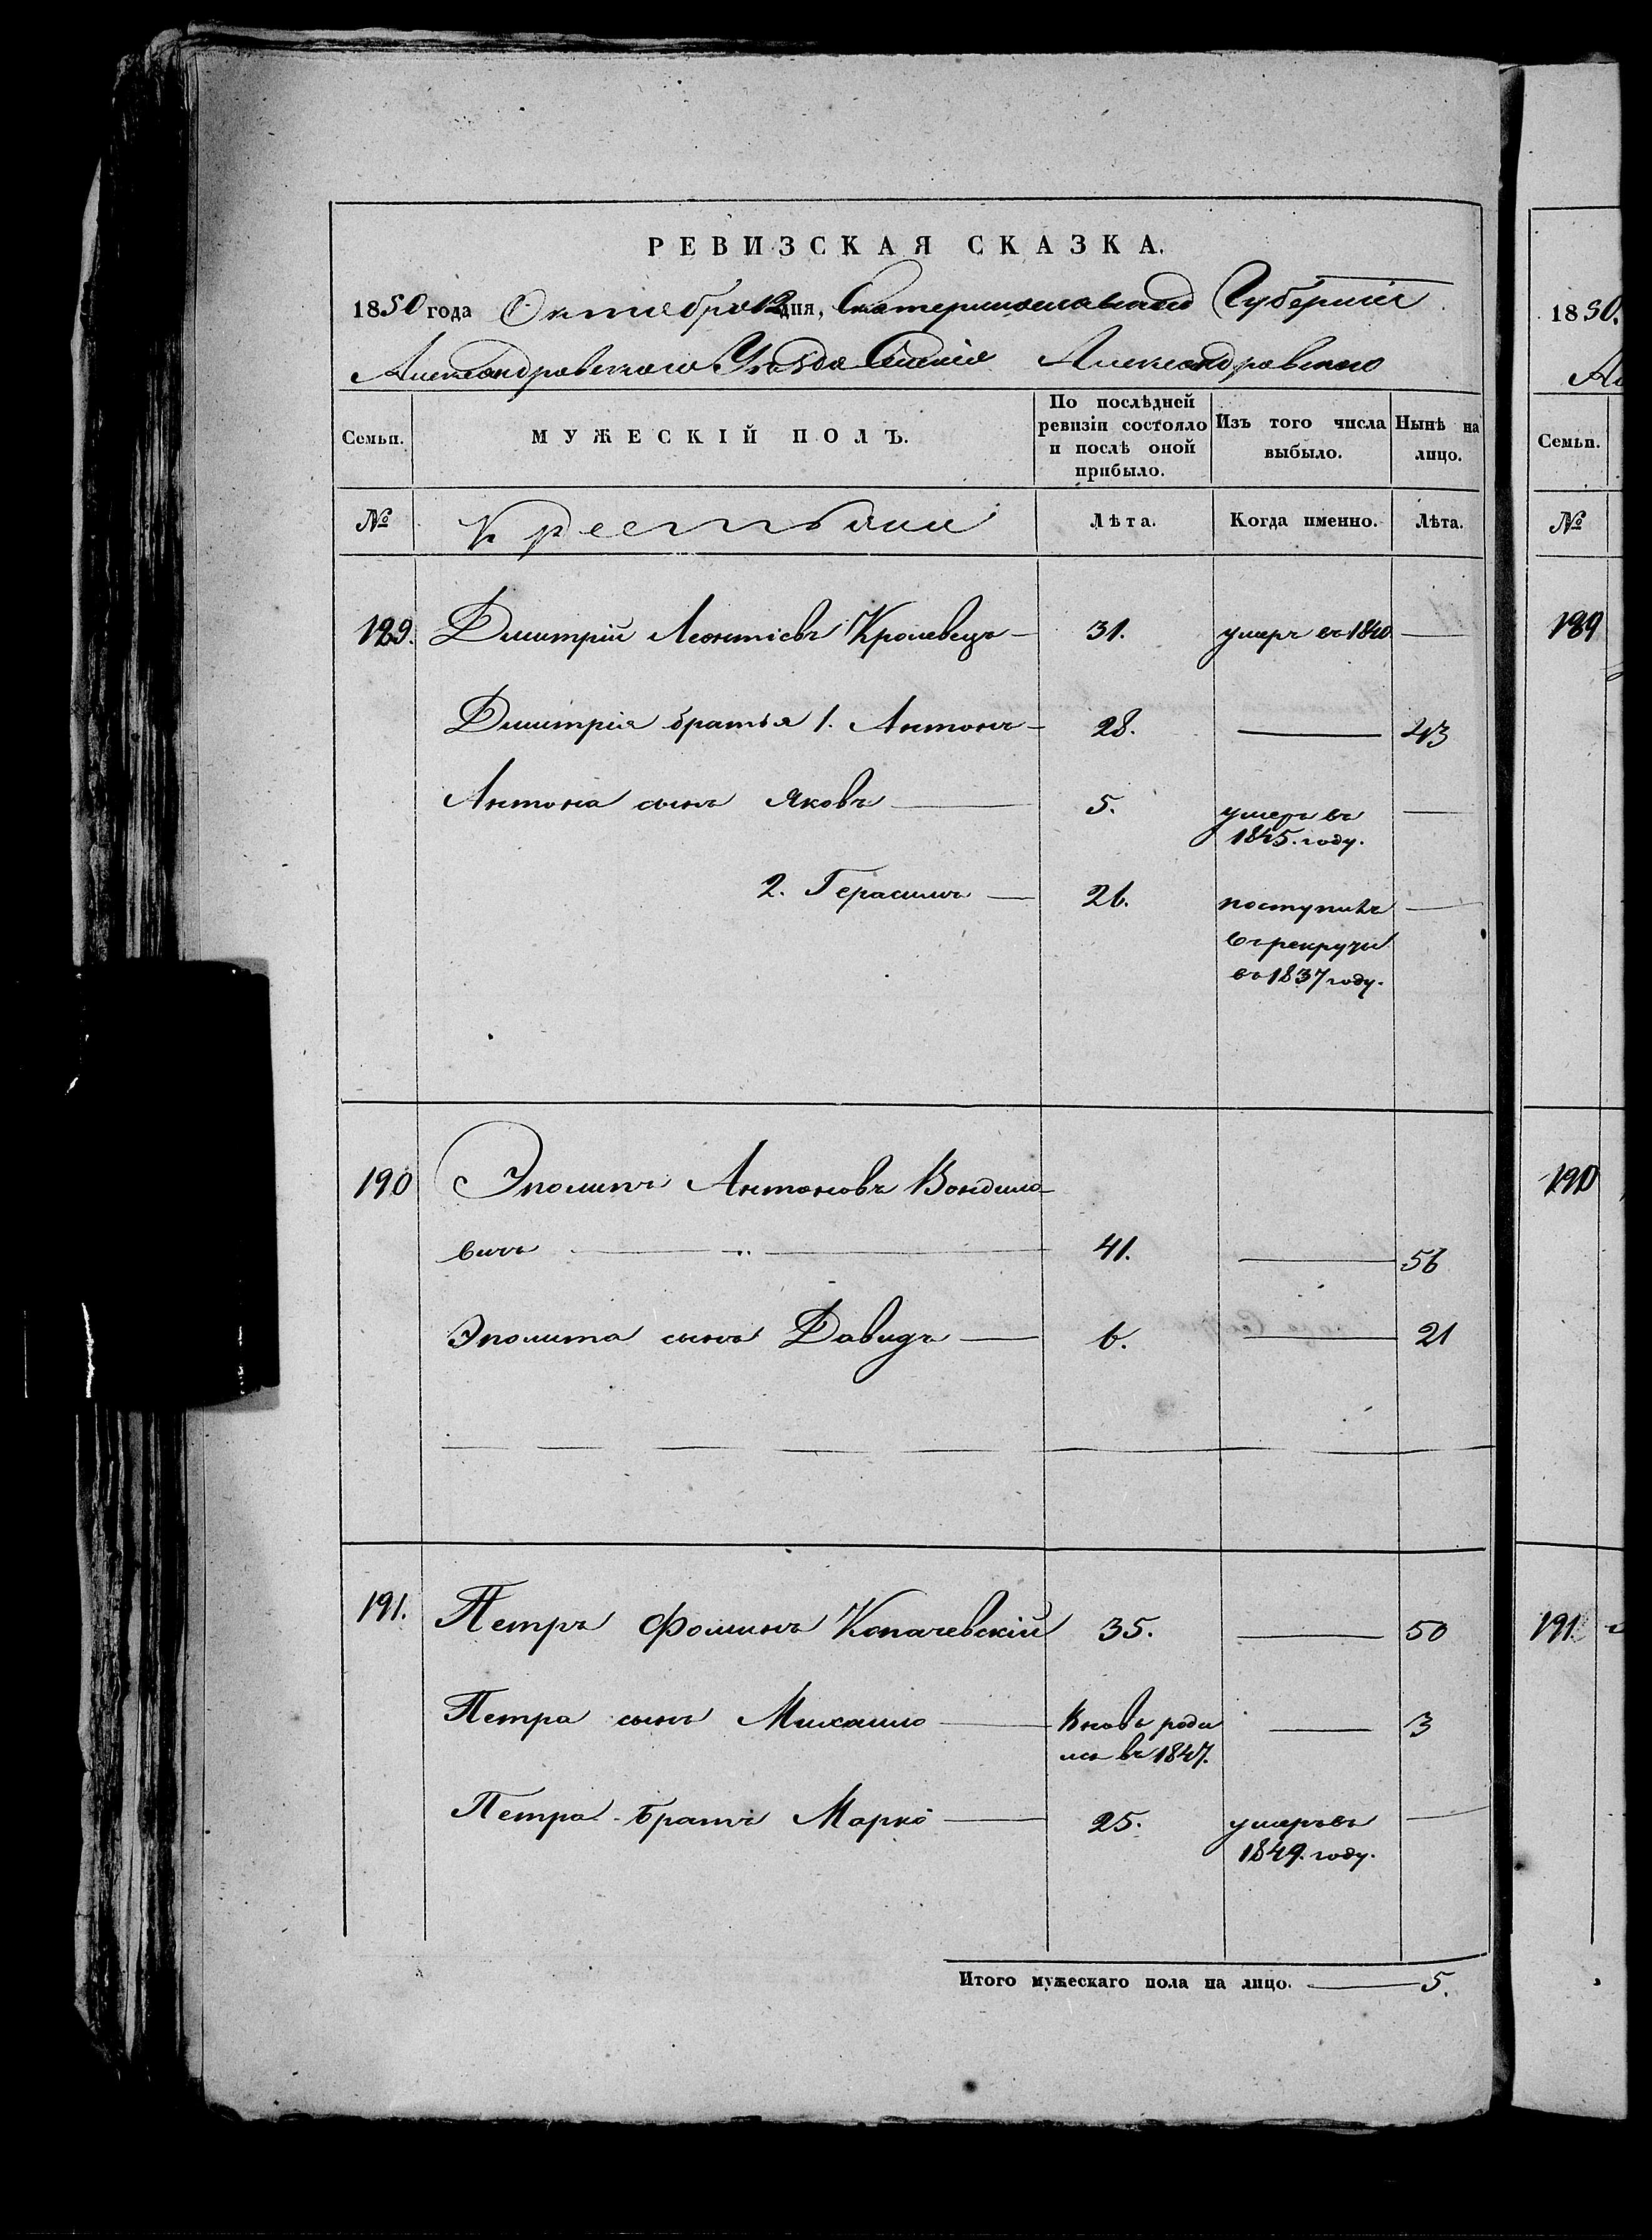 РЕВИЗСКАЯ СКАЗКА.
1850 года Октября 12 дня, Екатеринославской Губернии
Александровского Уезда Александровского
Семьи. МУЖЕСКІЙ ПОЛЪ. По послѣдней ревизіи состояло и послѣ оной прибыло. Изъ того числа выбыло. Нынѣ на лицо.
№ Крестьяни Лѣта. Когда именно. Лѣта.
189. Дмитрій Леонтіевъ Кролевецъ 31. умеръ въ 1840
Дмитрія братья 1. Антонъ 28. 43
Антона сынъ Яковъ 5. умеръ въ
1845. году.
2. Герасимъ 26. поступилъ
въ рекруты
въ 1837 году.
190 Эполитъ Антоновъ Вондило-
вичъ 41. 56
Эполита сынъ Давидъ 6. 21
191. Петръ Фоминъ Копачевскій 35. 50
Петра сынъ Михаило Вновь роди
лся въ 1847. 3
Петра братъ Марко 25. умеръ въ
1849. году.
Итого мужескаго пола на лицо. 5.
1850.
Семьи.
№
189
190
191.